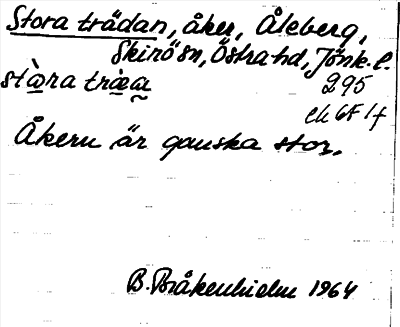 Stora trädan, åker, Åleberg,
Skirö sn, Östra hd, Jönk. l.
stàra træa 295
ek 6F 1f
Åkern är ganska stor.
B. Bråkenhielm 1964